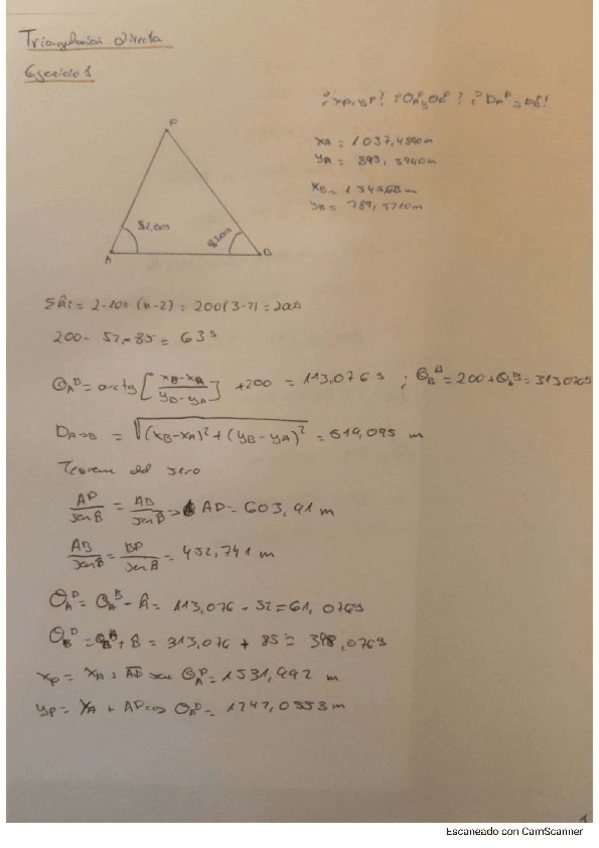 Triangulación directa
Ejercicio 1
¿xp,yp? ¿θAP y θBP? ¿DAP y DBP?
P
xA = 1037,4890m
yA = 893,3940m
yB = 789,5710m
52,000
A
B
200 - 52 - 85 = 63g
θAB = arctg [xB-xA / yB-yA] +200 = 113,076g ; θBA = 200 + θAB = 313,076g
DA→B = √(xB-xA)² + (yB-yA)² = 519,095 m
Teorema del seno
AP/sen B = AB/sen P → AP = 603,91 m
AB/sen P = BP/sen A = 452,741 m
θAP = θAB - Â = 113,076 - 52 = 61,076g
θBP = θBA + B = 313,076 + 85 = 398,076g
xp = xA + AP sen θAP = 1531,992 m
yp = yA + AP cos θAP = 1247,0353 m
Escaneado con CamScanner